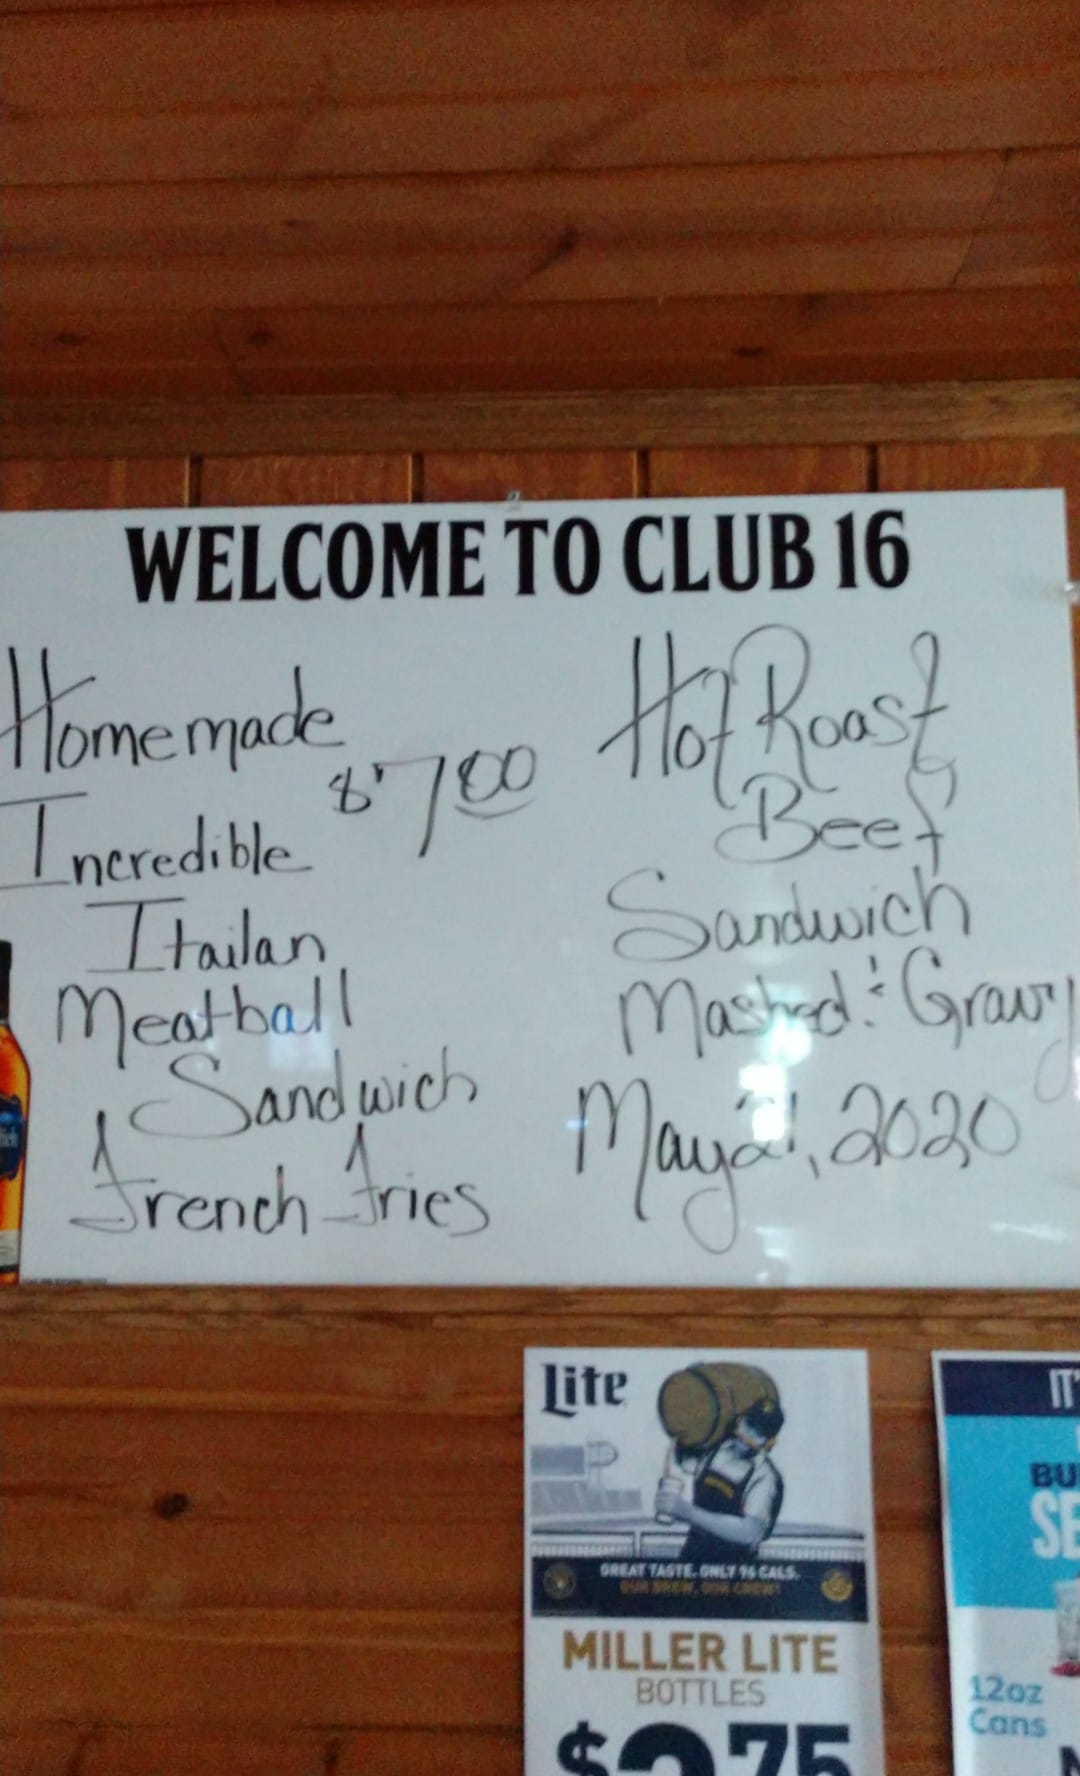 WELCOME TO CLUB 16
Homemade
$7.00
Incredible
Itailan
Meatball
Sandwich
French Fries
Hot Roast
Beef
Sandwich
Mashed & Gravy
May 21, 2020
Lite
GREAT TASTE. ONLY 96 CALS.
OUR BREW, OUR CREW!
MILLER LITE
BOTTLES
$2.75
IT'
BU
SE
12oz
Cans